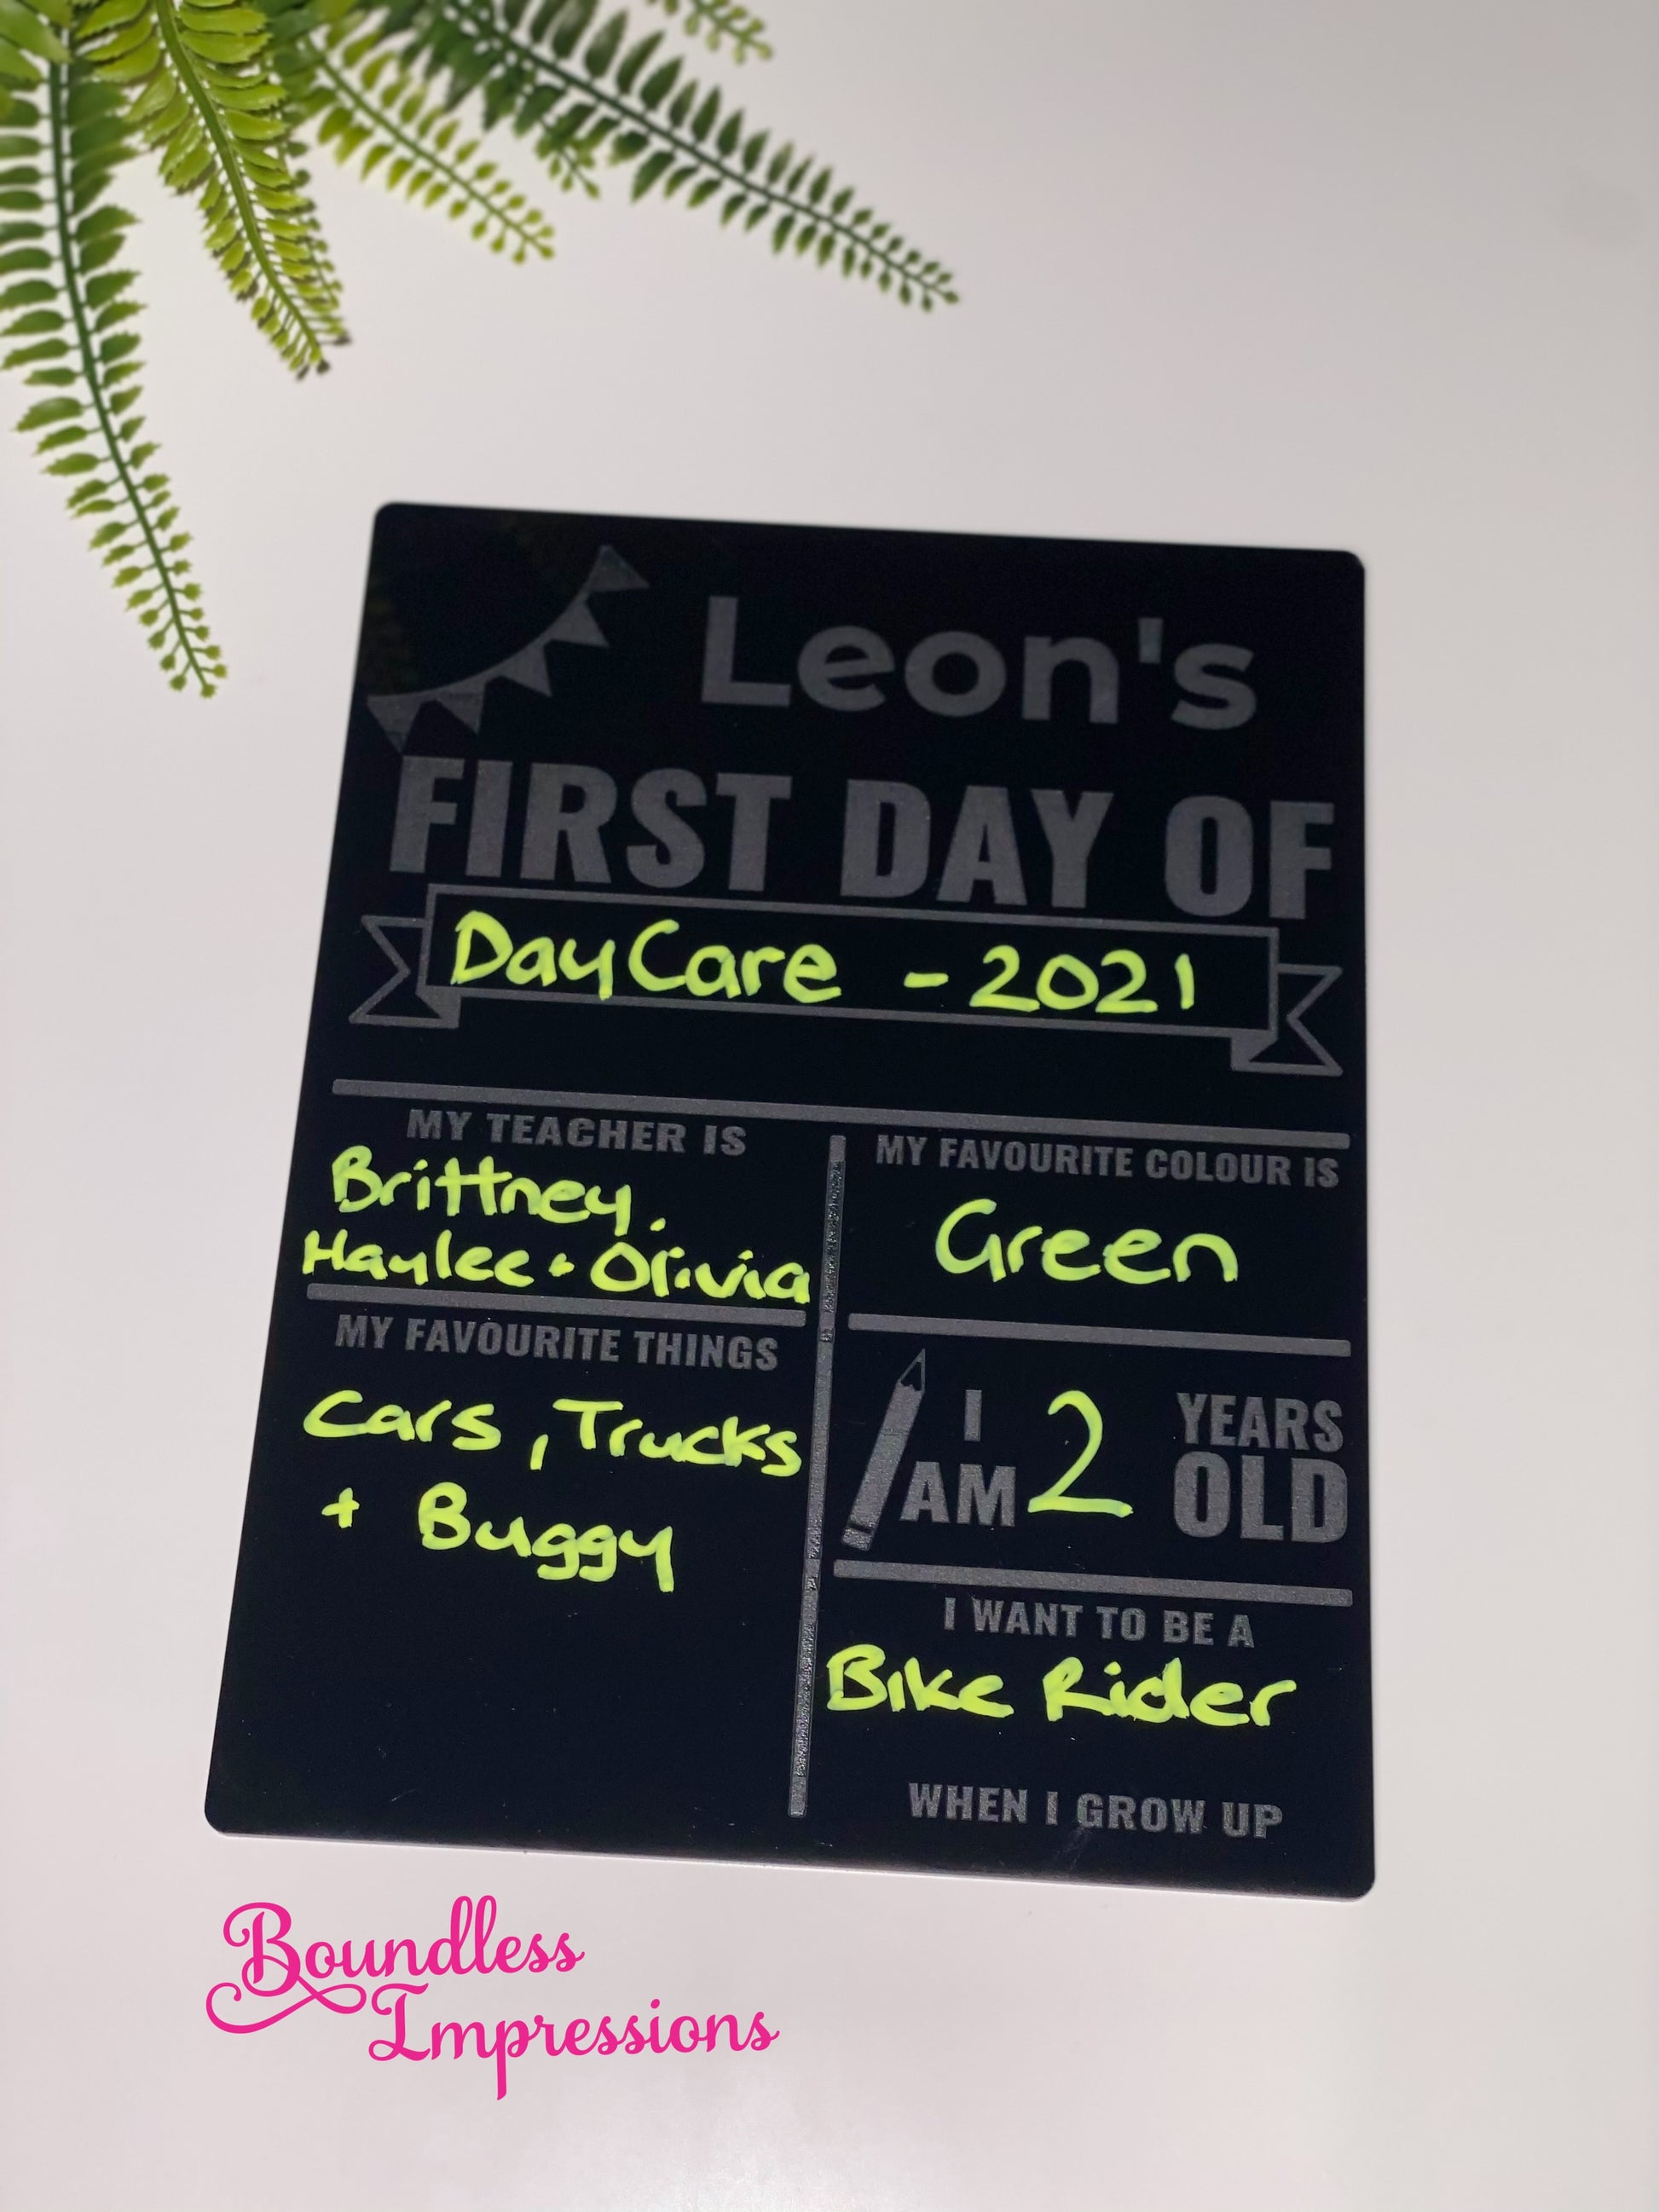 Leon's
FIRST DAY OF
DayCare - 2021
MY TEACHER IS
Brittney,
Haylee + Olivia
MY FAVOURITE THINGS
Cars, Trucks
+ Buggy
MY FAVOURITE COLOUR IS
Green
I AM 2 YEARS OLD
I WANT TO BE A
Bike Rider
WHEN I GROW UP
Boundless
Impressions